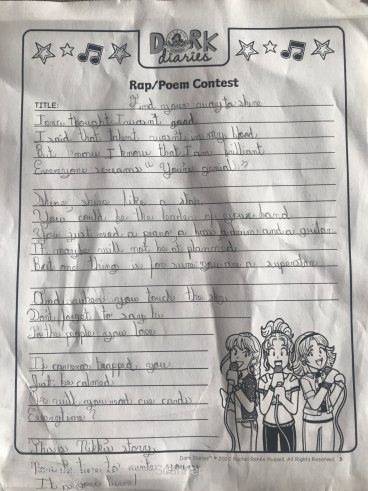 DORK
diaries
Rap/Poem Contest
TITLE: Find your way to shine
I once thought I wasn't good
I said that talent wasn't in my blood
But now I know that I am brilliant
Everyone screams "You're genial"
Shine, shine like a star
You could be the leader of your band
You just need a piano a bass, a drum and a guitar
It maybe will not be at planned
But one thing is for sure you are a superstar
And when you touch the sky
Don't forget to say hi
To the people you love
If camera trapped you
Just be calmed
Or will you need cue cards
Everytime?
This is Nikki's story
Now it's time to write yours
It is your turn!
Dork Diaries™ © 2020 Rachel Renée Russell. All Rights Reserved. 3